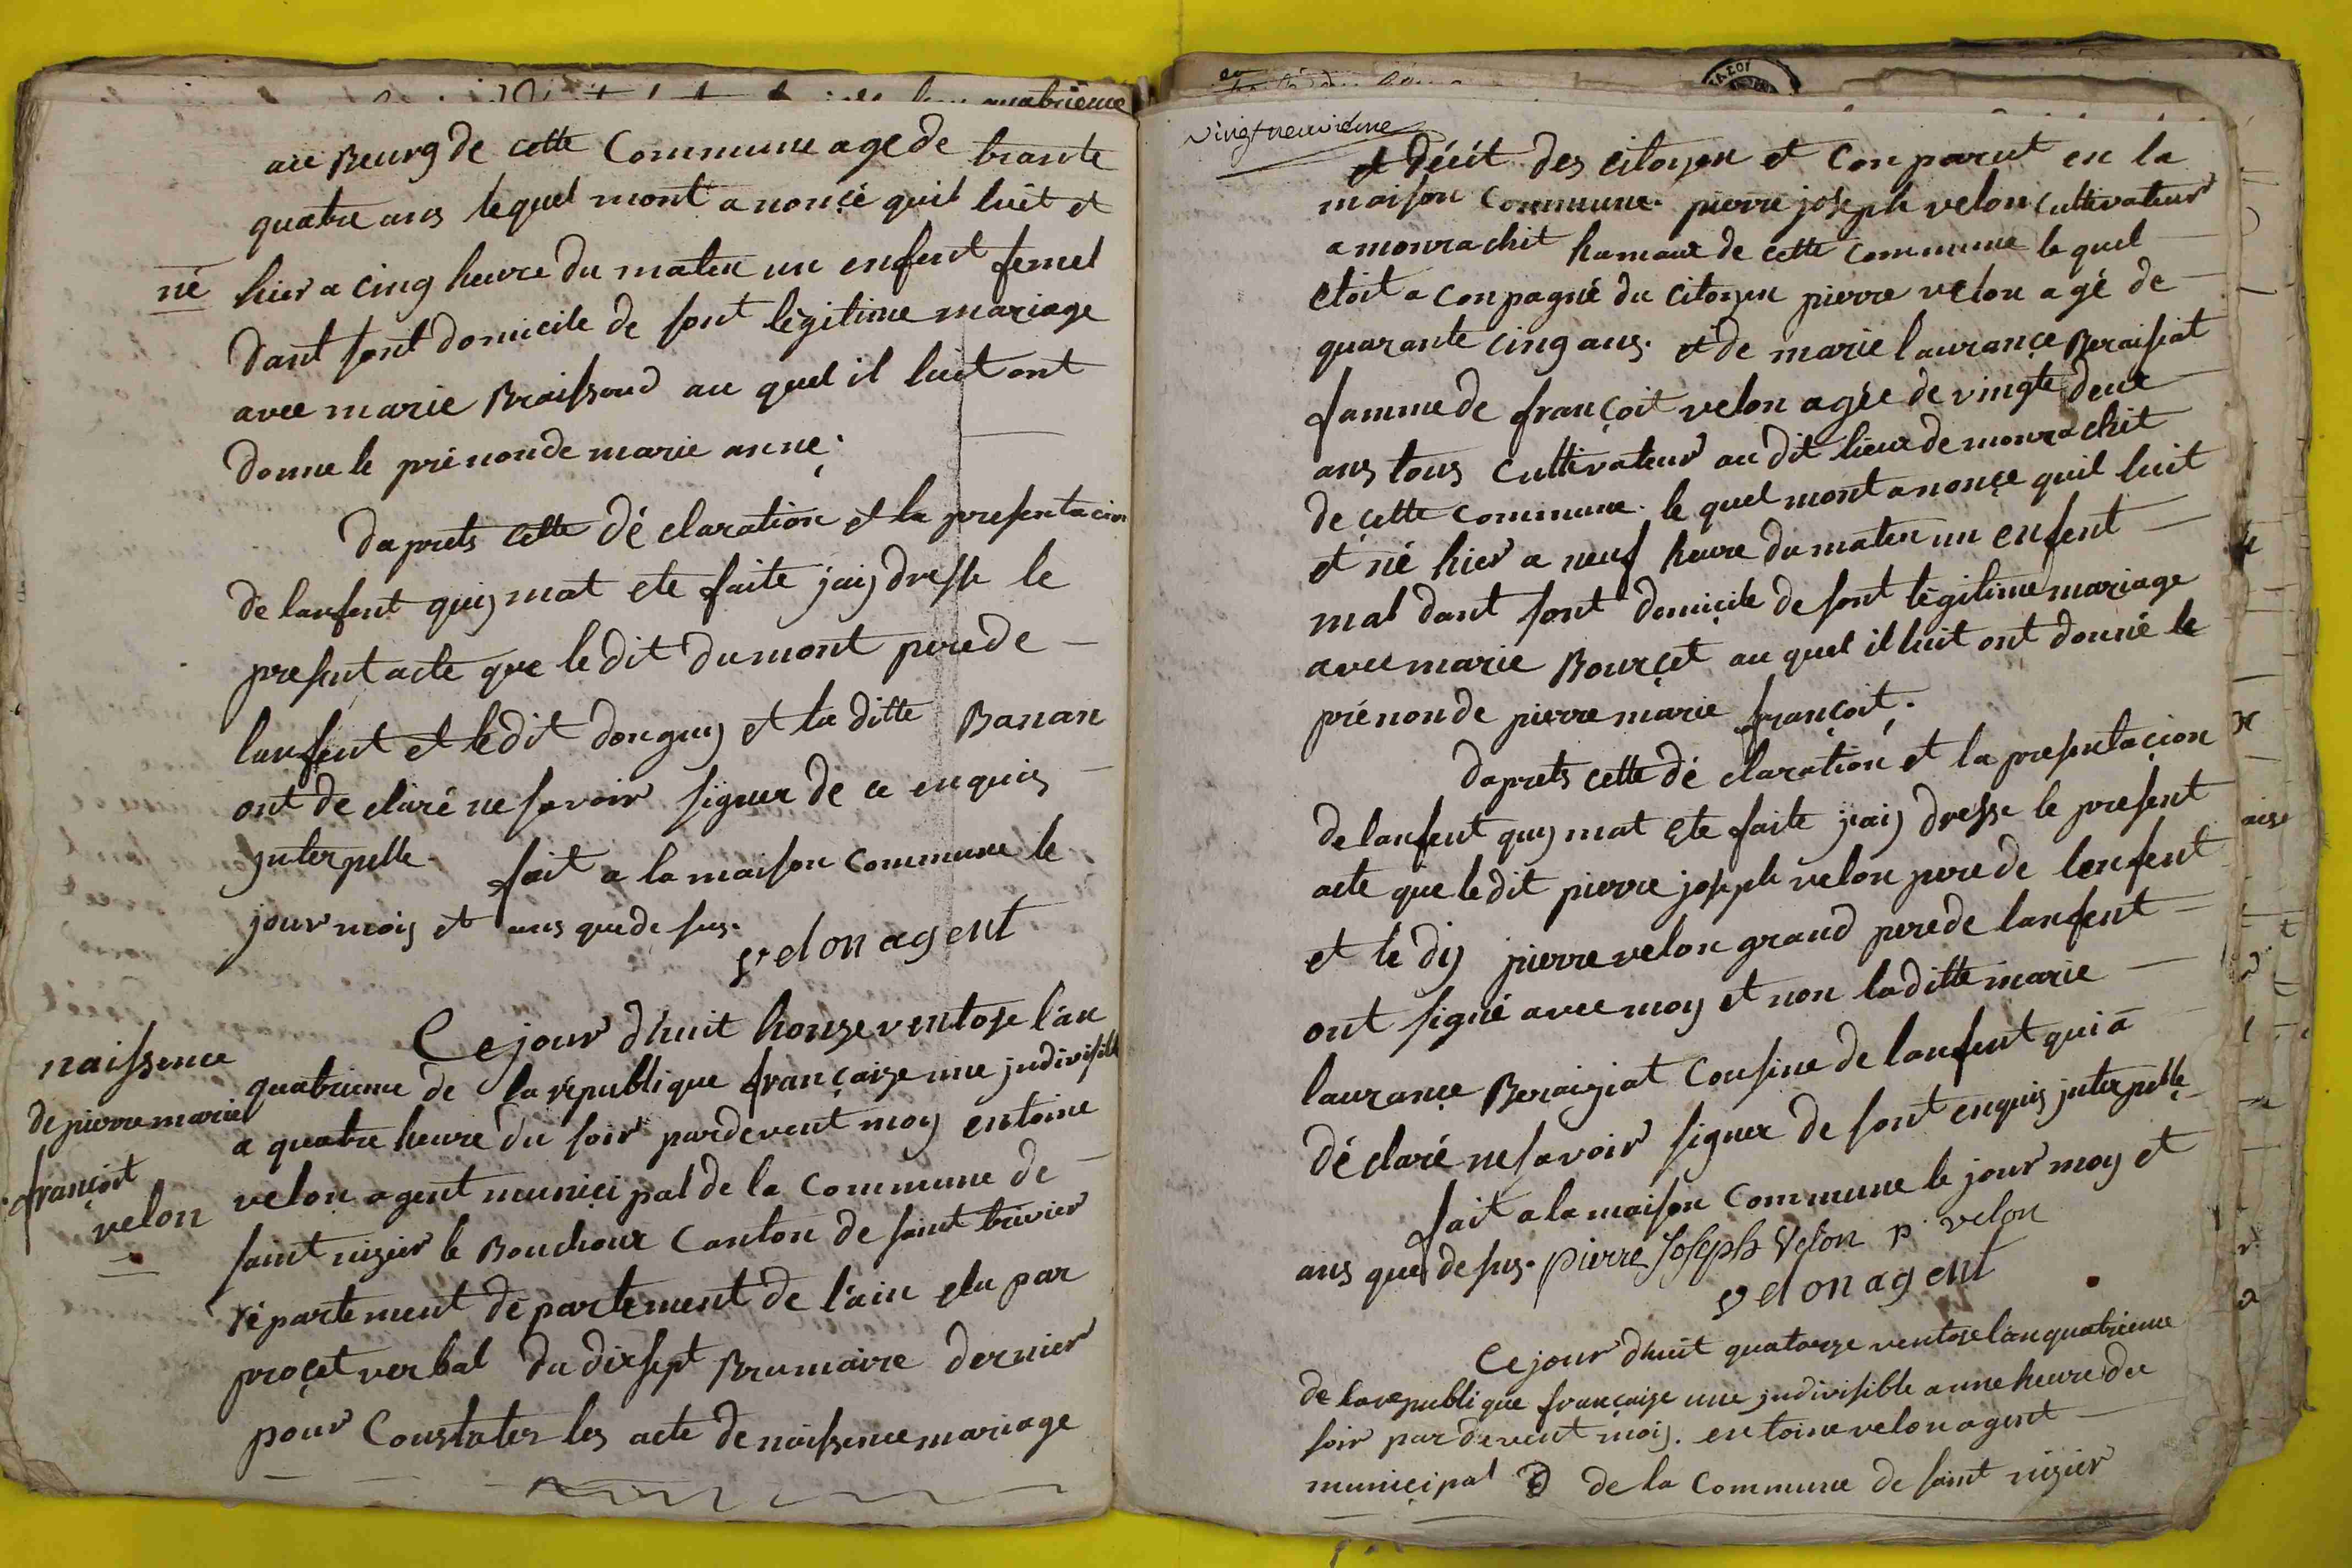 quatrieme
au Beurg de cette Commune age de trante
quatre ans lequel mont anoncé quil luit et
né
hier a cinq heure du maten un enfent femel
dant sont domicile de sont légitime mariage
avec marie Braissoud au quel il luit ont
donne le prénon de marie anne.
daprets cette dé claration et la presentacion
de lanfent quy mat ete faite jaiy dresse le
present acte que le dit dumont perede
lanfent et le dit donguy et la ditte Banan
ont de claré ne savoir signer de ce enquis
jnterpelle. fait a la maison commune le
jour mois et ans que de sus.
velon agent
naissence
de pierre marie
françoit
velon
Ce jour dhuit honze ventose l'an
quatrieme de la république françaize une jndivisible
a quatre heure du soir pardevent moy entoine
velon agent municipal de la Commune de
saint nizier le Bouchoux Canton de saint trivier
département département de l'ain elu par
procet verbal du dixsept Brumaire dernier
pour Constater les acte de naissence mariage
vingt neuvieme
et décét des citoyen et Conparut en la
maison Commune. pierre joseph velon cultivateur
a monrachit hamaux de cette commune le quel
etoit a conpagné du citoyen pierre velon agé de
quarante cinq ans. et de marie laurance Beraisiat
famme de françoit velon agée de vingte deux
ans tous cultivateur au dit lieux de monrachit
de cette commune. le quel mont anonce quil luit
et né hier a neuf heure du maten un enfent
mal dant sont domicile de sont légitime mariage
avec marie Bourcet au quel il luit ont donné le
prénon de pierre marie françoit.
daprets cette dé claration et la presentacion
de lanfent quy mat ete faite jaiy dresse le present
acte que le dit pierre joseph velon pere de lenfent
et le diy pierre velon grand pere de lanfent
ont signé avec moy et non la ditte marie
laurance Beraiziat cousine de lanfent qui a
déclaré ne savoir signer de sont enquis jnterpelle
fait a la maison Commune le jour moy et
ans que de sus. pierre Joseph Velon p. velon
velon agent
Ce jour dhuit quatorze ventose lan quatrieme
de la republique françaize une jndivisible a une heure du
soir par devent moiy. entoine velon agent
municipal de la Commune de saint nizier